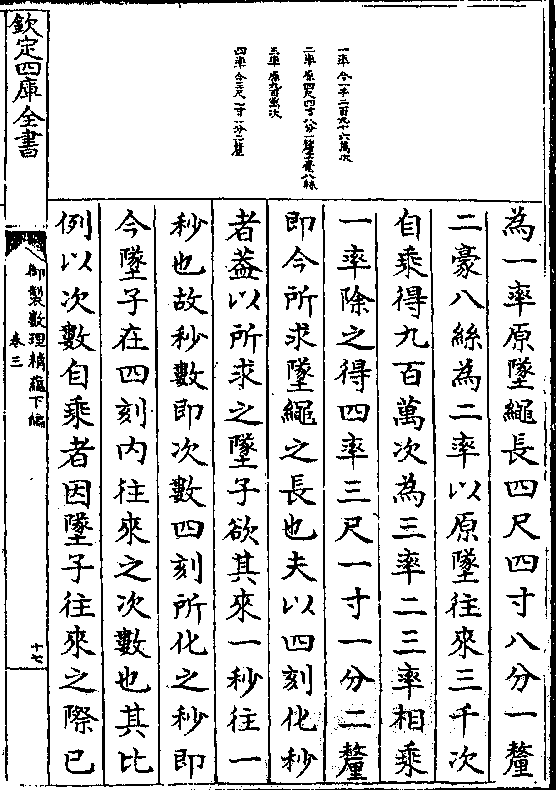 一率 今一千二百九十六萬次
二率 原四尺四寸八分一釐二豪八絲
三率 原九百萬次
四率 今三尺一寸一分二釐
為一率原墜繩長四尺四寸八分一釐
二豪八絲為二率以原墜往來三千次
自乘得九百萬次為三率二三率相乘
一率除之得四率三尺一寸一分二釐
即今所求墜繩之長也夫以四刻化秒
者葢以所求之墜子欲其來一秒往一
秒也故秒數即次數四刻所化之秒即
今墜子在四刻内往來之次數也其比
例以次數自乘者因墜子往來之際已
欽定四庫全書
御製數理精蘊下編
卷三
十七